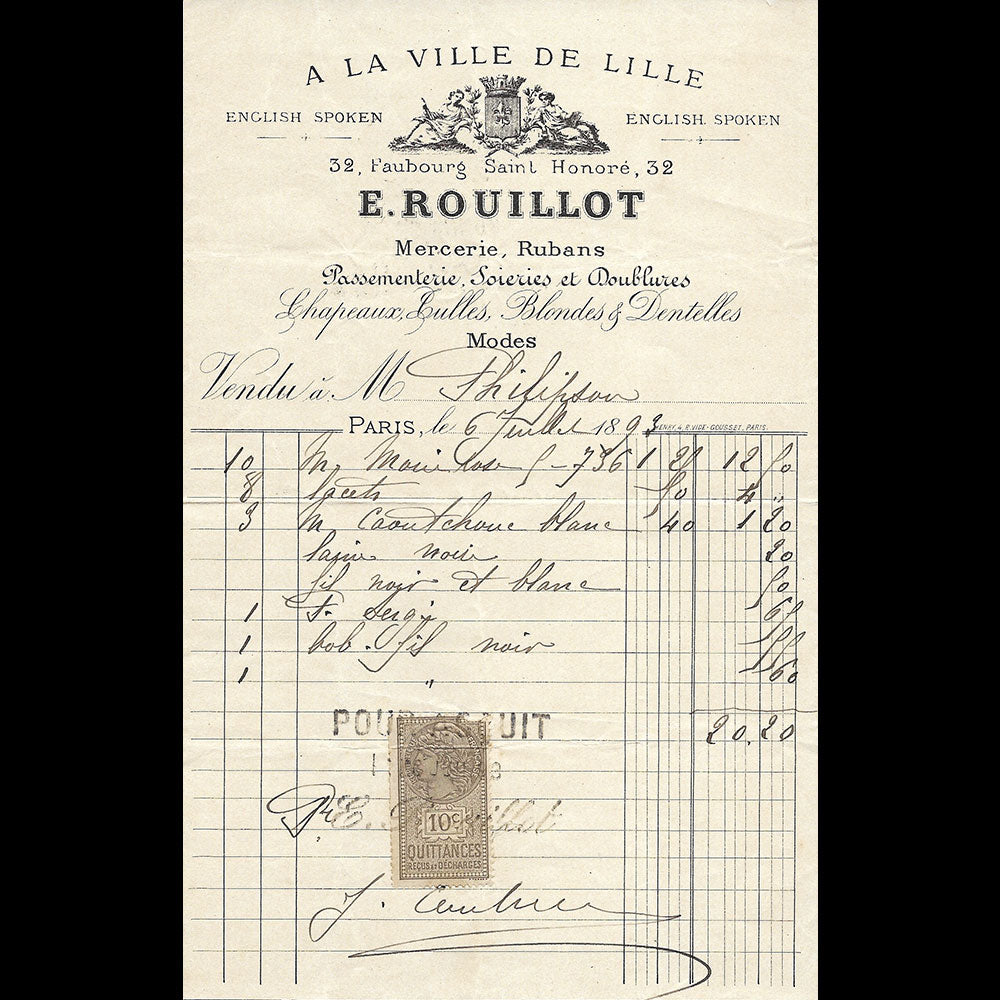 A LA VILLE DE LILLE
ENGLISH SPOKEN ENGLISH SPOKEN
32, Faubourg Saint Honoré, 32
E. ROUILLOT
Mercerie, Rubans
Passementerie, Soieries et Doublures
Chapeaux, Tulles, Blondes & Dentelles
Modes
Vendu à M Philipson
PARIS, le 6 Juillet 1893 HENRY, 4, R. VIDE-GOUSSET, PARIS.
10 m 1 20 12
8 lacets 50 4 "
3 m Caoutchouc blanc 40 1 20
laine noire 20
fil noir et blanc 50
1
1 bob. fil noir
1 " 60
20.20
POUR ACQUIT
Pr E. Rouillot
10c
QUITTANCES
REÇUS ET DÉCHARGES
J.